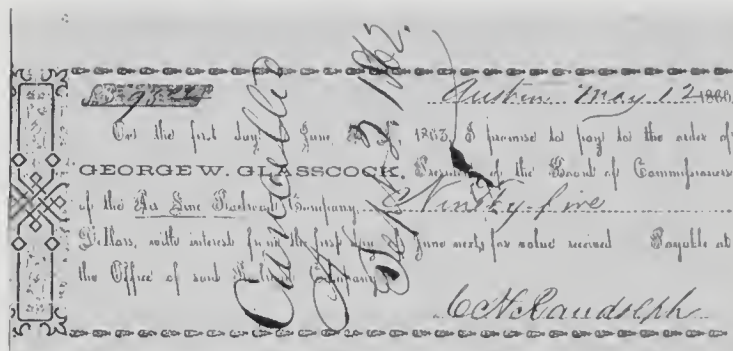 $ 95.00 Austin May 12 1860
On the first day of June A.D. 1863, I promise to pay to the order of
GEORGE W. GLASSCOCK, President of the Board of Commissioners
of the Air Line Railroad Company Ninety-five
Dollars, with interest from the first day June next, for value received Payable at
the Office of said Railroad Company
C H Randolph
Cancelled
Sept 3. 1862.